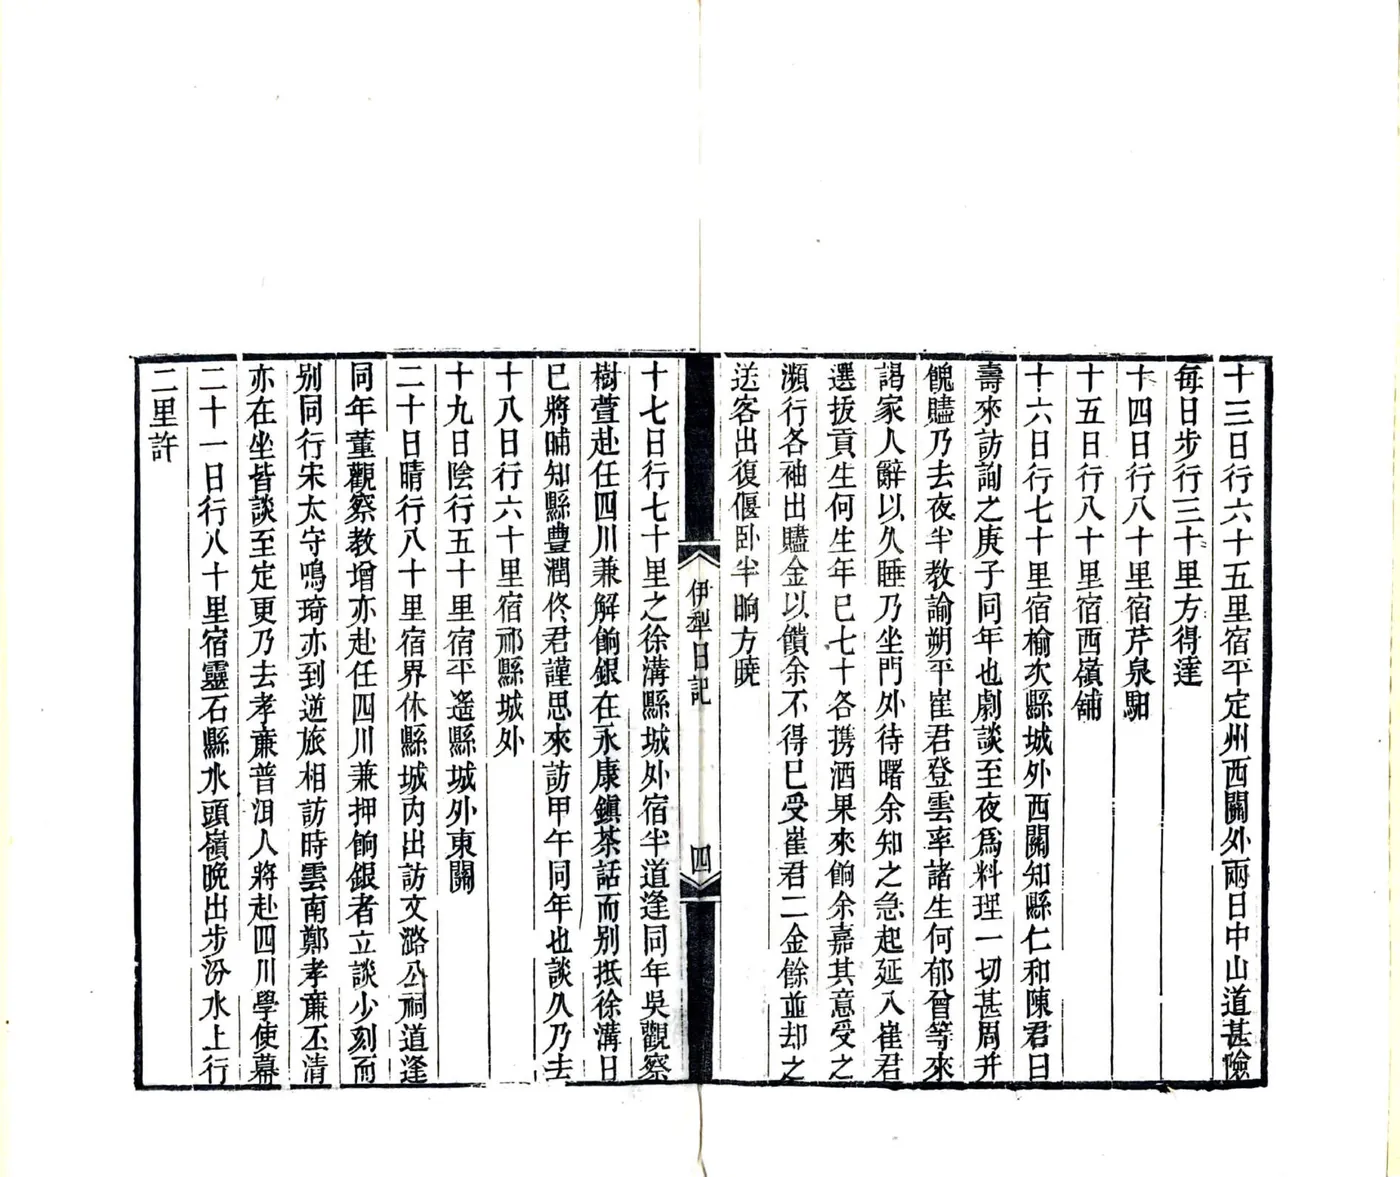 十三日行六十五里宿平定州西關外兩日中山道甚險
每日步行三十里方得達
十四日行八十里宿芹泉馹
十五日行八十里宿西嶺舖
十六日行七十里宿榆次縣城外西關知縣仁和陳君曰
壽來訪詢之庚子同年也劇談至夜爲料理一切甚周并
餽贐乃去夜半教諭朔平崔君登雲率諸生何郁曾等來
謁家人辭以久睡乃坐門外待曙余知之急起延入崔君
選拔貢生何生年已七十各携酒果來餉余嘉其意受之
瀕行各袖出贐金以饋余不得已受崔君二金餘並却之
送客出復偃卧半晌方曉
伊犁日記
四
十七日行七十里之徐溝縣城外宿半道逢同年吳觀察
樹萱赴任四川兼解餉銀在永康鎭茶話而别抵徐溝日
已將晡知縣豐潤佟君謹思來訪甲午同年也談久乃去
十八日行六十里宿祁縣城外
十九日陰行五十里宿平遙縣城外東關
二十日晴行八十里宿界休縣城内出訪文潞公祠道逢
同年董觀察教增亦赴任四川兼押餉銀者立談少刻而
别同行宋太守鳴琦亦到逆旅相訪時雲南鄭孝亷丕清
亦在坐皆談至定更乃去孝亷普洱人將赴四川學使幕
二十一日行八十里宿靈石縣水頭嶺晚出步汾水上行
二里許